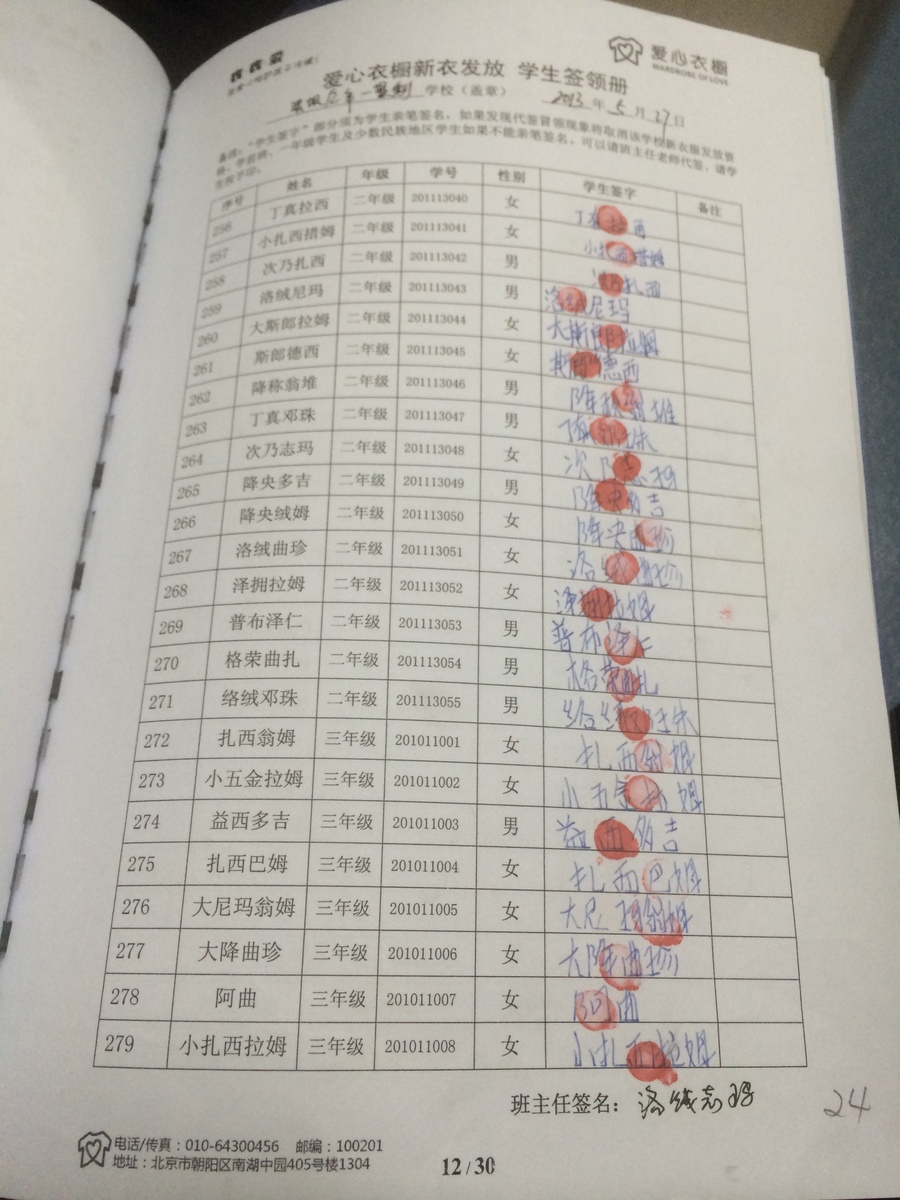 爱心衣橱
WARDROBE OF LOVE
爱心衣橱新衣发放 学生签领册
学校（盖章） 2013 年 5 月 27 日
备注："学生签字"部分须为学生亲笔签名，如果发现代签冒领现象将取消该学校新衣服发放资
格，学前班、一年级学生及少数民族地区学生如果不能亲笔签名，可以请班主任老师代签，请学
生按手印。
序号 姓名 年级 学号 性别 学生签字 备注
256 丁真拉西 二年级 201113040 女 丁真拉西
257 小扎西措姆 二年级 201113041 女 小扎西措姆
258 次乃扎西 二年级 201113042 男 次乃扎西
259 洛绒尼玛 二年级 201113043 男 洛绒尼玛
260 大斯郎拉姆 二年级 201113044 女 大斯郎拉姆
261 斯郎德西 二年级 201113045 女 斯郎德西
262 降称翁堆 二年级 201113046 男 降称翁堆
263 丁真邓珠 二年级 201113047 男
264 次乃志玛 二年级 201113048 女 次乃志玛
265 降央多吉 二年级 201113049 男 降央多吉
266 降央绒姆 二年级 201113050 女 降央曲珍
267 洛绒曲珍 二年级 201113051 女 洛绒曲珍
268 泽拥拉姆 二年级 201113052 女 泽拥拉姆
269 普布泽仁 二年级 201113053 男 普布泽仁
270 格荣曲扎 二年级 201113054 男 格荣曲扎
271 络绒邓珠 二年级 201113055 男 络绒邓珠
272 扎西翁姆 三年级 201011001 女 扎西翁姆
273 小五金拉姆 三年级 201011002 女 小五金拉姆
274 益西多吉 三年级 201011003 男 益西多吉
275 扎西巴姆 三年级 201011004 女 扎西巴姆
276 大尼玛翁姆 三年级 201011005 女 大尼玛翁姆
277 大降曲珍 三年级 201011006 女 大降曲珍
278 阿曲 三年级 201011007 女 阿曲
279 小扎西拉姆 三年级 201011008 女 小扎西拉姆
班主任签名：洛绒志玛
24
电话/传真：010-64300456 邮编：100201
地址：北京市朝阳区南湖中园405号楼1304
12/30